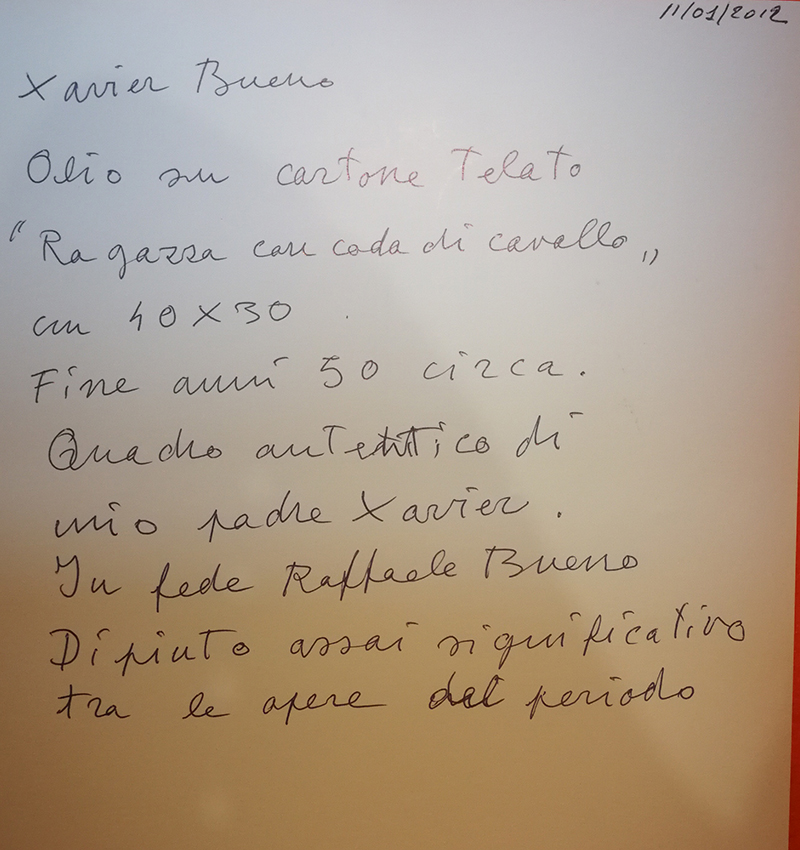 11/01/2012
Xavier Bueno
Olio su cartone Telato
"Ragazza con coda di cavallo"
cm 40X30
Fine anni 50 circa.
Quadro autentico di
mio padre Xavier.
In fede Raffaele Bueno
Dipinto assai significativo
tra le opere del periodo